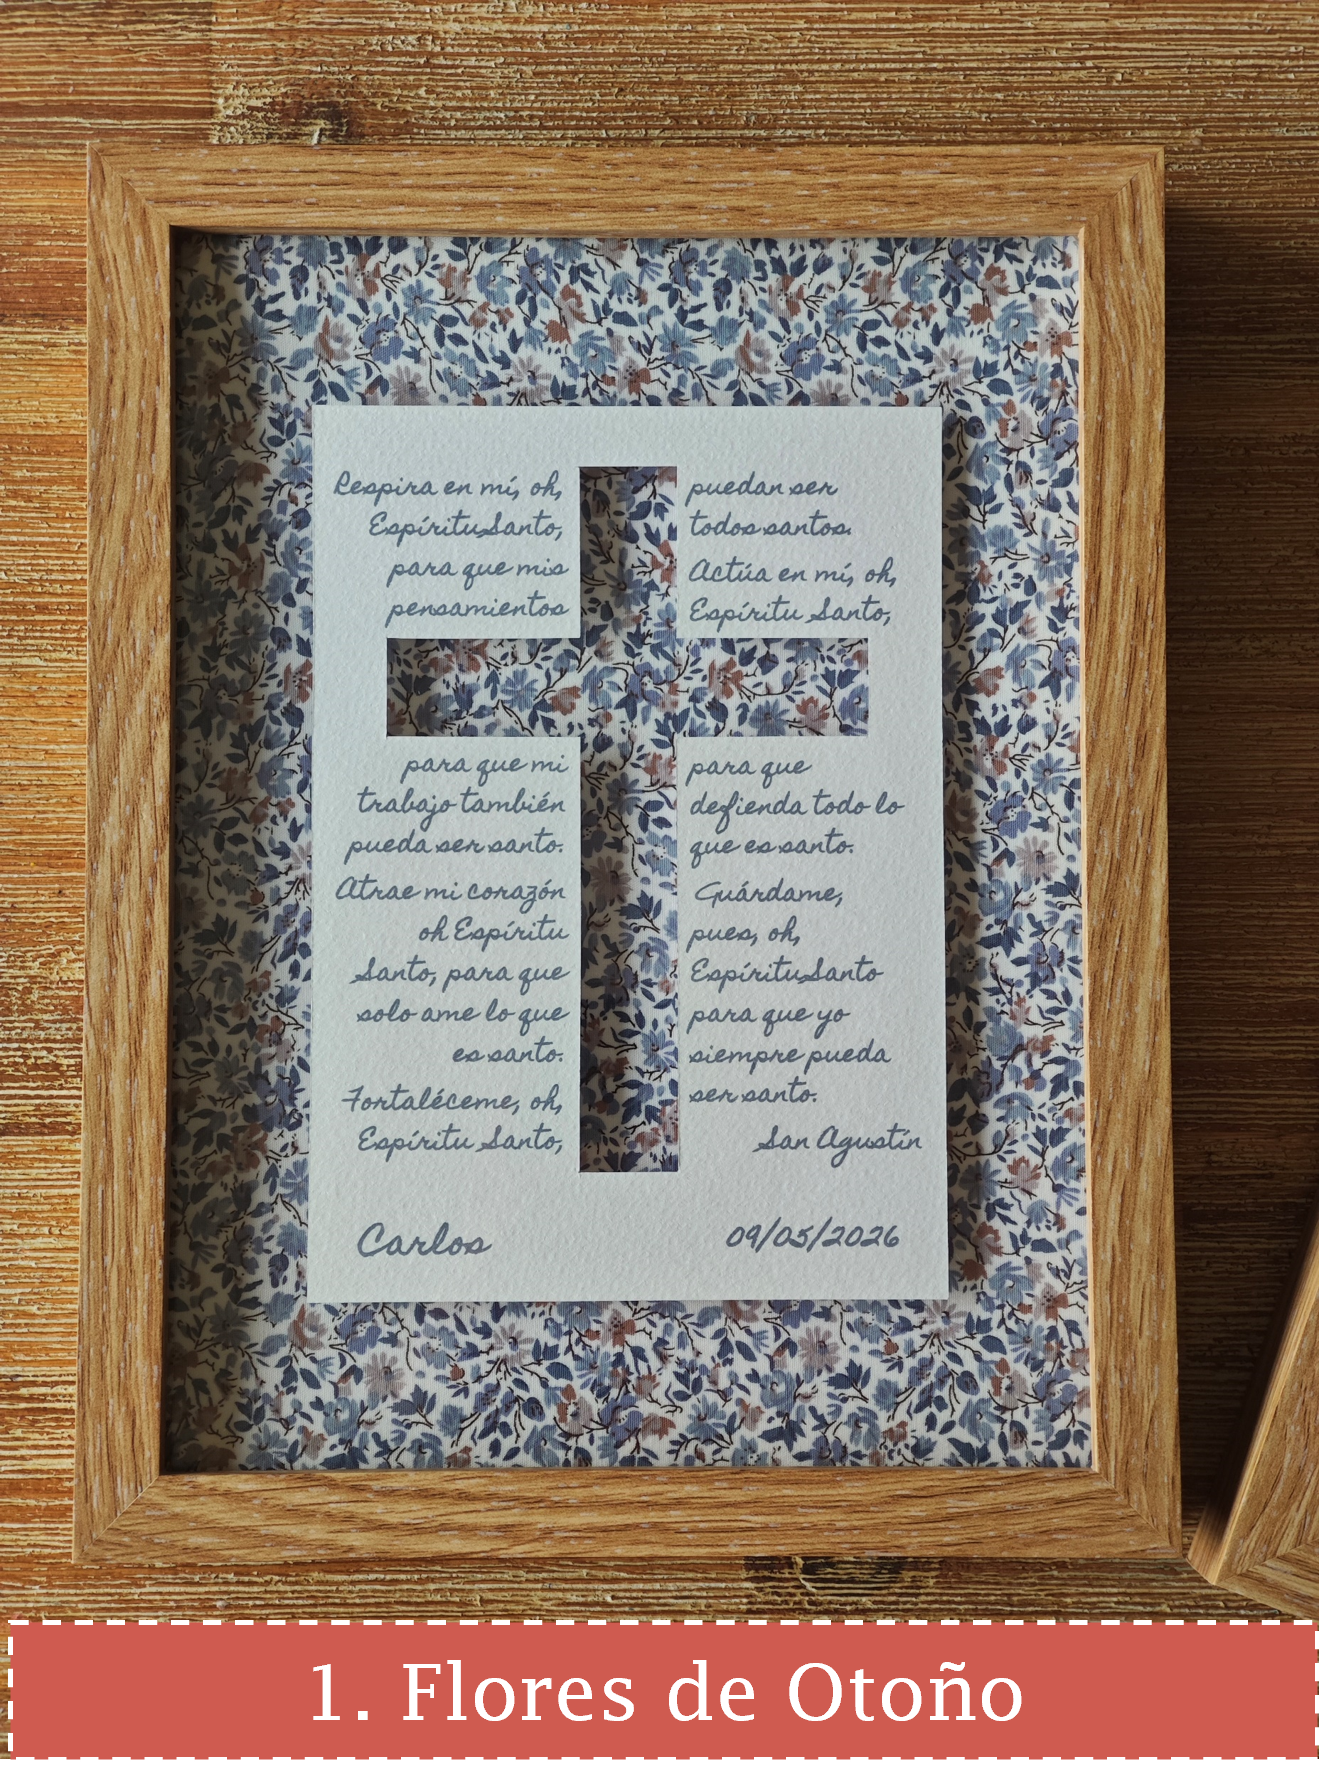 Respira en mí, oh,
Espíritu Santo,
para que mis
pensamientos
puedan ser
todos santos.
Actúa en mí, oh,
Espíritu Santo,
para que mi
trabajo también
pueda ser santo.
Atrae mi corazón
oh Espíritu
Santo, para que
solo ame lo que
es santo.
Fortaléceme, oh,
Espíritu Santo,
para que
defienda todo lo
que es santo.
Guárdame,
pues, oh,
Espíritu Santo
para que yo
siempre pueda
ser santo.
San Agustín
Carlos
09/05/2026
1. Flores de Otoño